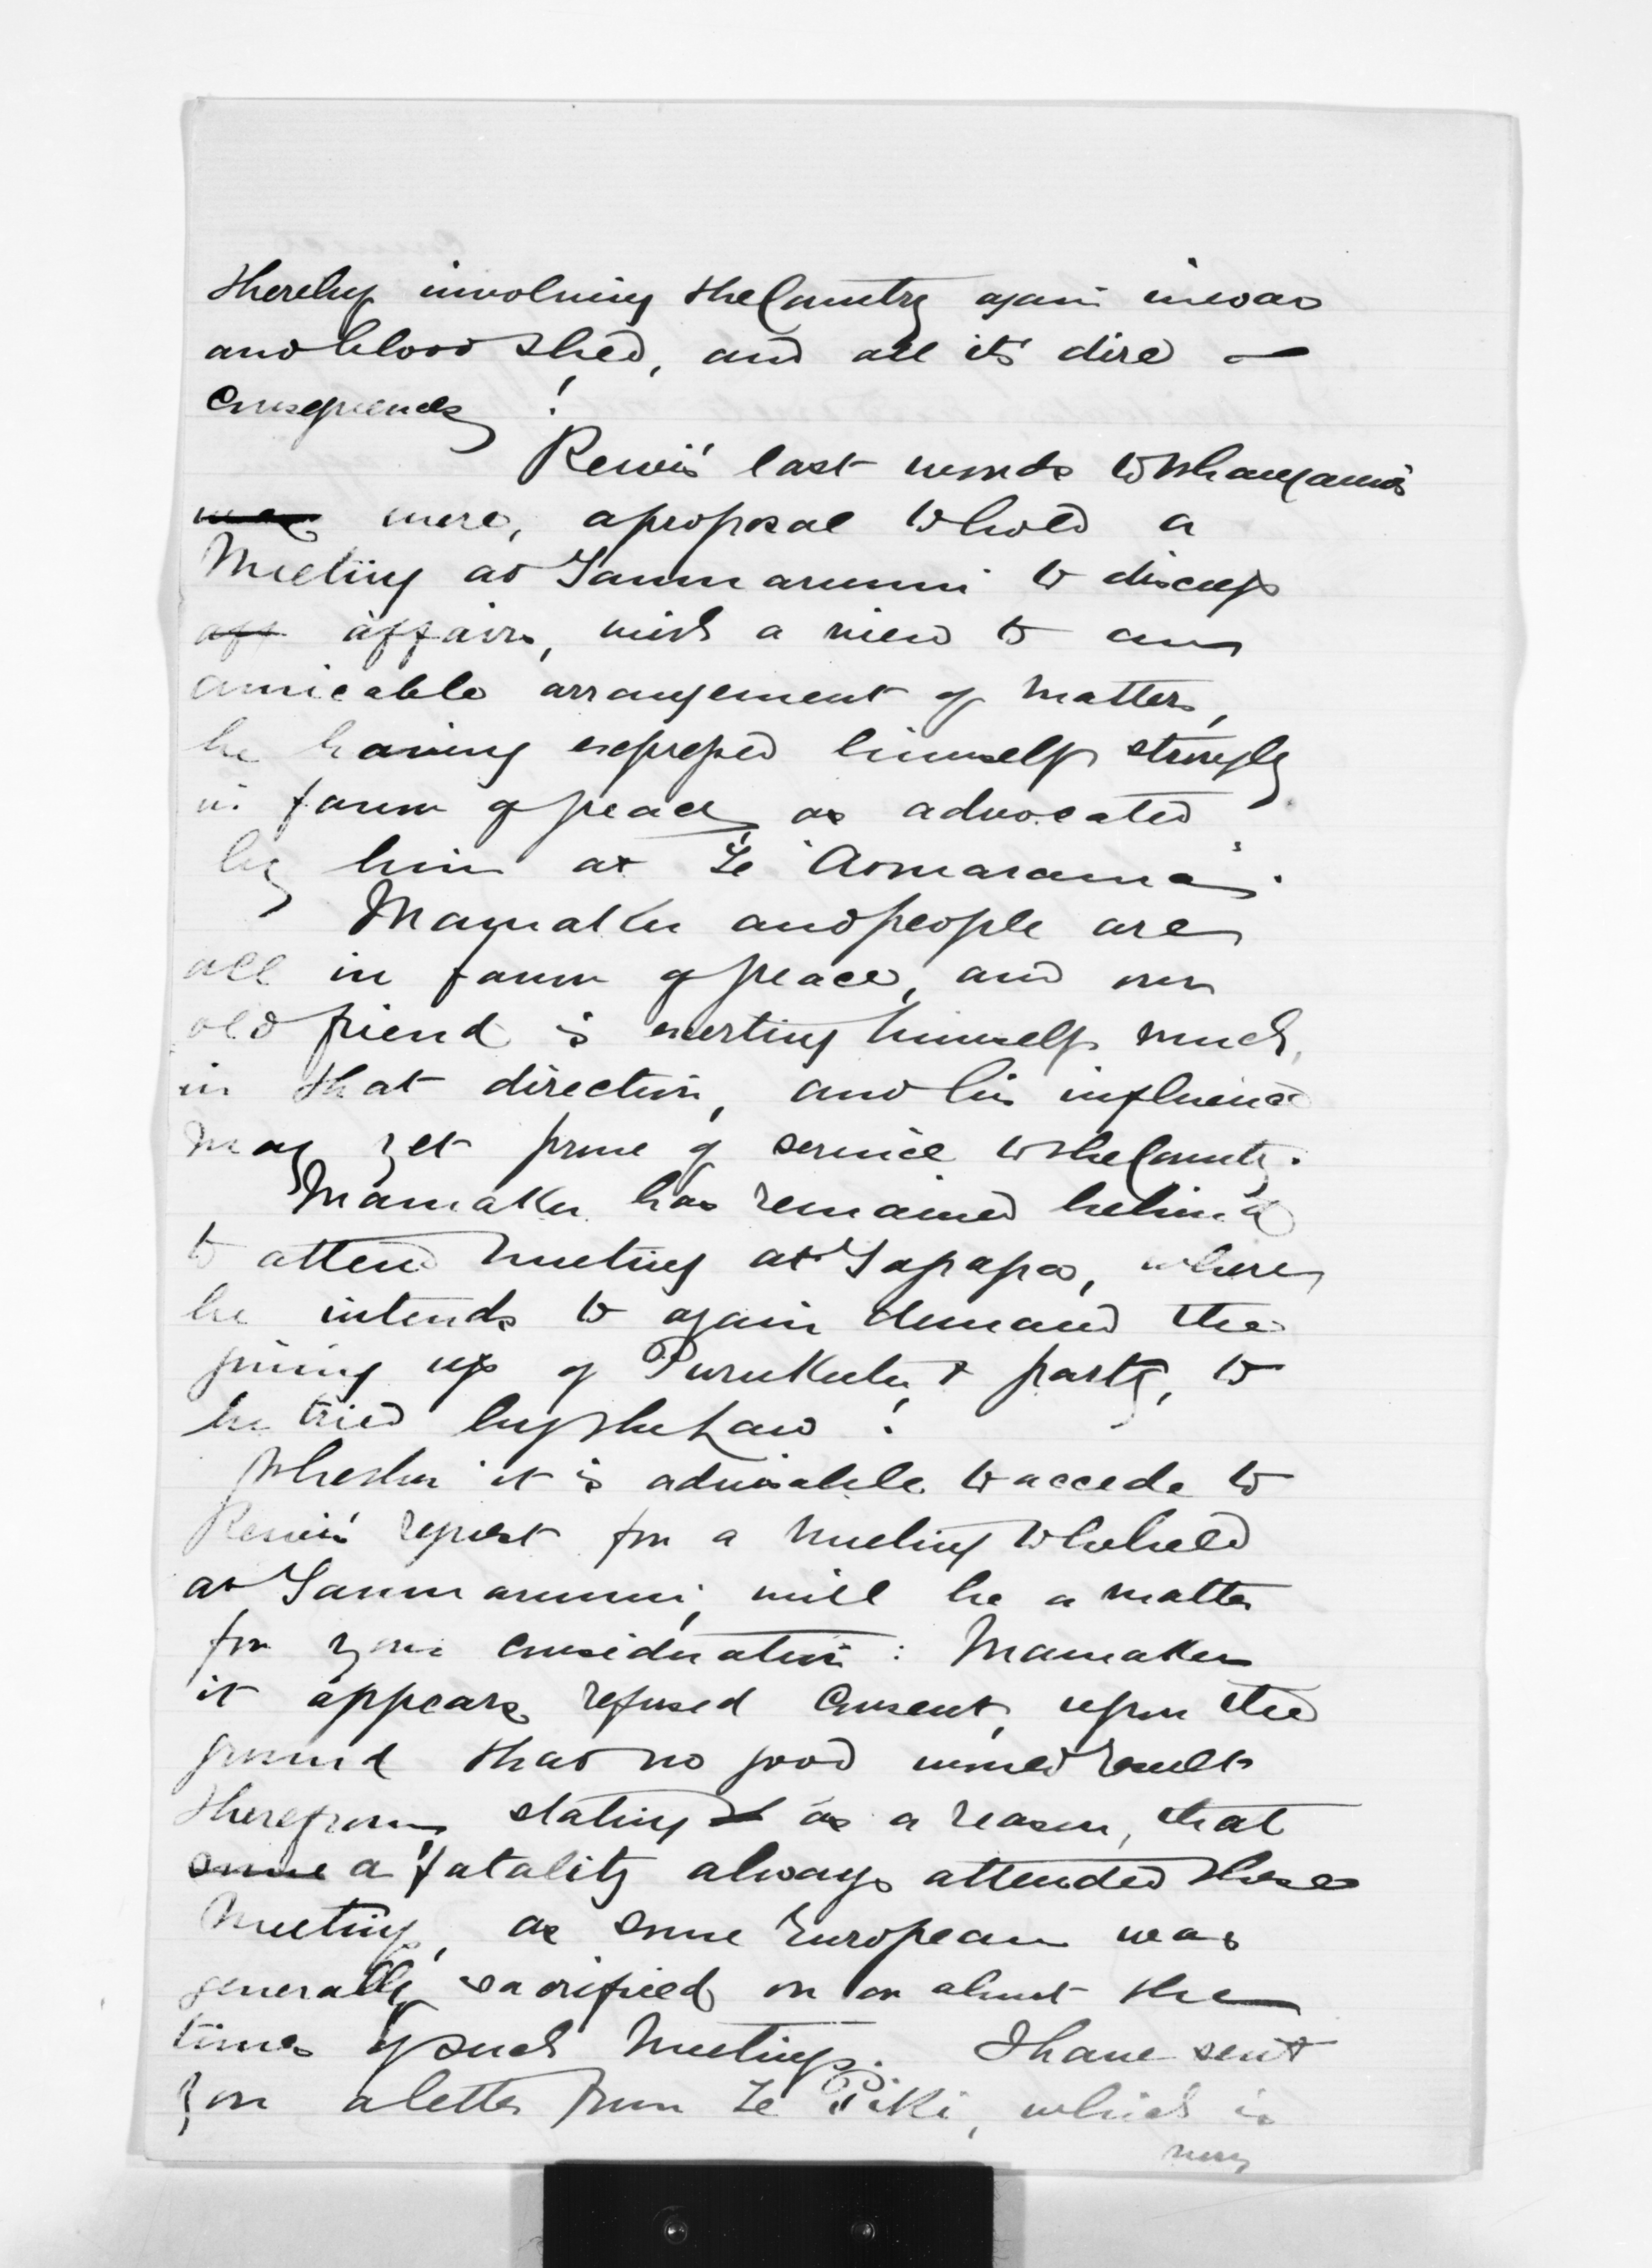 thereby involving the Country again in war
and blood shed, and all its dire –
consequences !
Rewi's last words to Whanganui's
were, a proposal to hold a
Meeting at Taumarunui to discuss
aff affairs, with a view to an
amicable arrangement of matters,
he having expressed himself strongly
in favor of peace, as advocated
by him at Te "Aomarama".
Mamaku and people are
all in favor of peace, and our
old friend is exerting himself much,
in that direction, and his influence
may yet prove of service to the Country.
Mamaku has remained behind
to attend meeting at Tapapa, where
he intends to again demand the
giving up of Purukutu & party, to
be tried by the Law !
Whether it is advisable to accede to
Rewi's request for a meeting to be held
at Taumarunui, will be a matter
for your consideration : Mamaku
it appears refused consent, upon the
ground that no good would result
therefrom, stating as a reason, that
some a fatality always attended these
Meetings, as some European was
generally sacrificed on or about the
times of such Meetings. I have sent
you a letter from Te Piki, which is
very